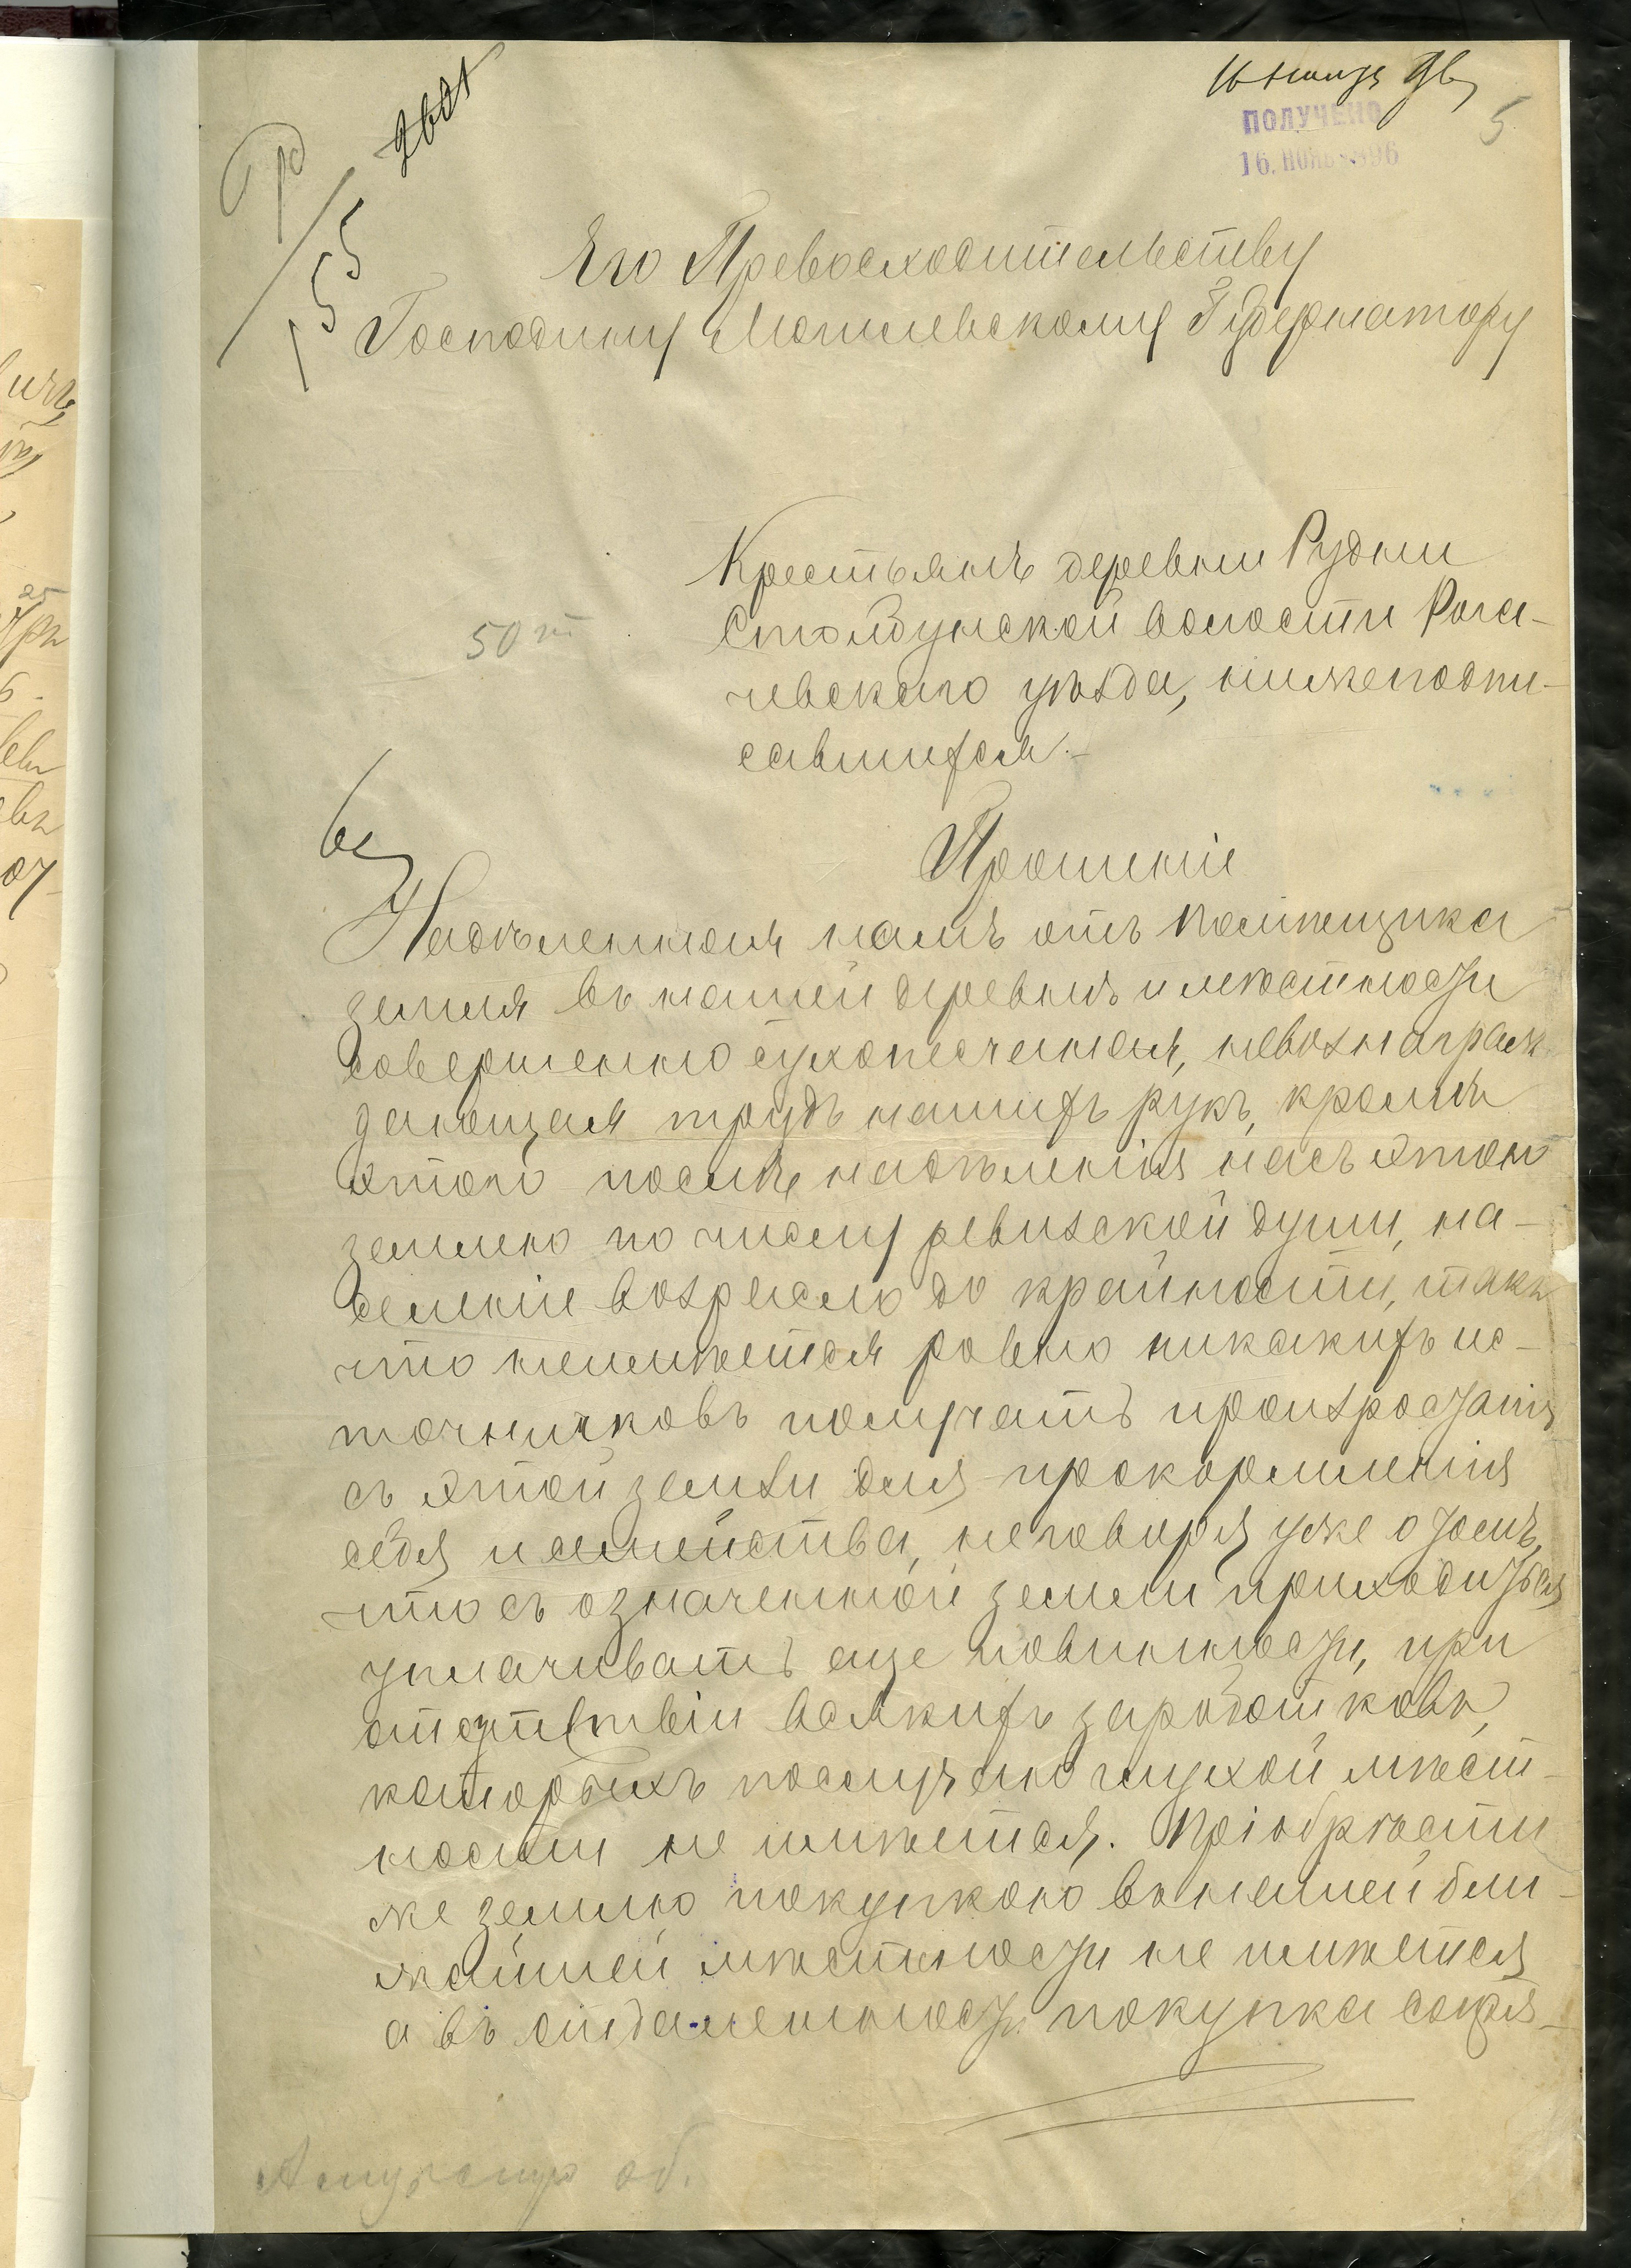 16 ноября 96
ПОЛУЧЕНО
16. НОЯБ. 1896
5
155
50 т
Его Превосходительству
Господину Могилевскому Губернатору
Крестьянъ деревни Рудни
Столбунской волости Рога-
чевскаго уѣзда, нижеподпи-
савшихся.-
Прошеніе
Надѣленная намъ отъ помѣщика
земля въ нашей деревнѣ и мѣстности
совершенно сухопесчаная, невознаграж-
дающая трудъ нашихъ рукъ, кромѣ
этого послѣ надѣленія насъ этою
землею по числу ревизской души, на-
селеніе возрасло до крайности, такъ
что неимѣется ровно никакихъ ис-
точниковъ получать произростанія
съ этой земли для прокормленія
себя и семейства, неговоря уже о томъ,
что съ означенной земли приходиться
уплачивать еще повинности, при
отсутствіи всякихъ заработковъ,
каторыхъ послучаю глухой мѣст-
ности не имѣется. Пріобрѣсти
же землю покупкою въ нашей бли-
жайшей мѣстности не имѣется
а въ отдаленности покупка сопря-